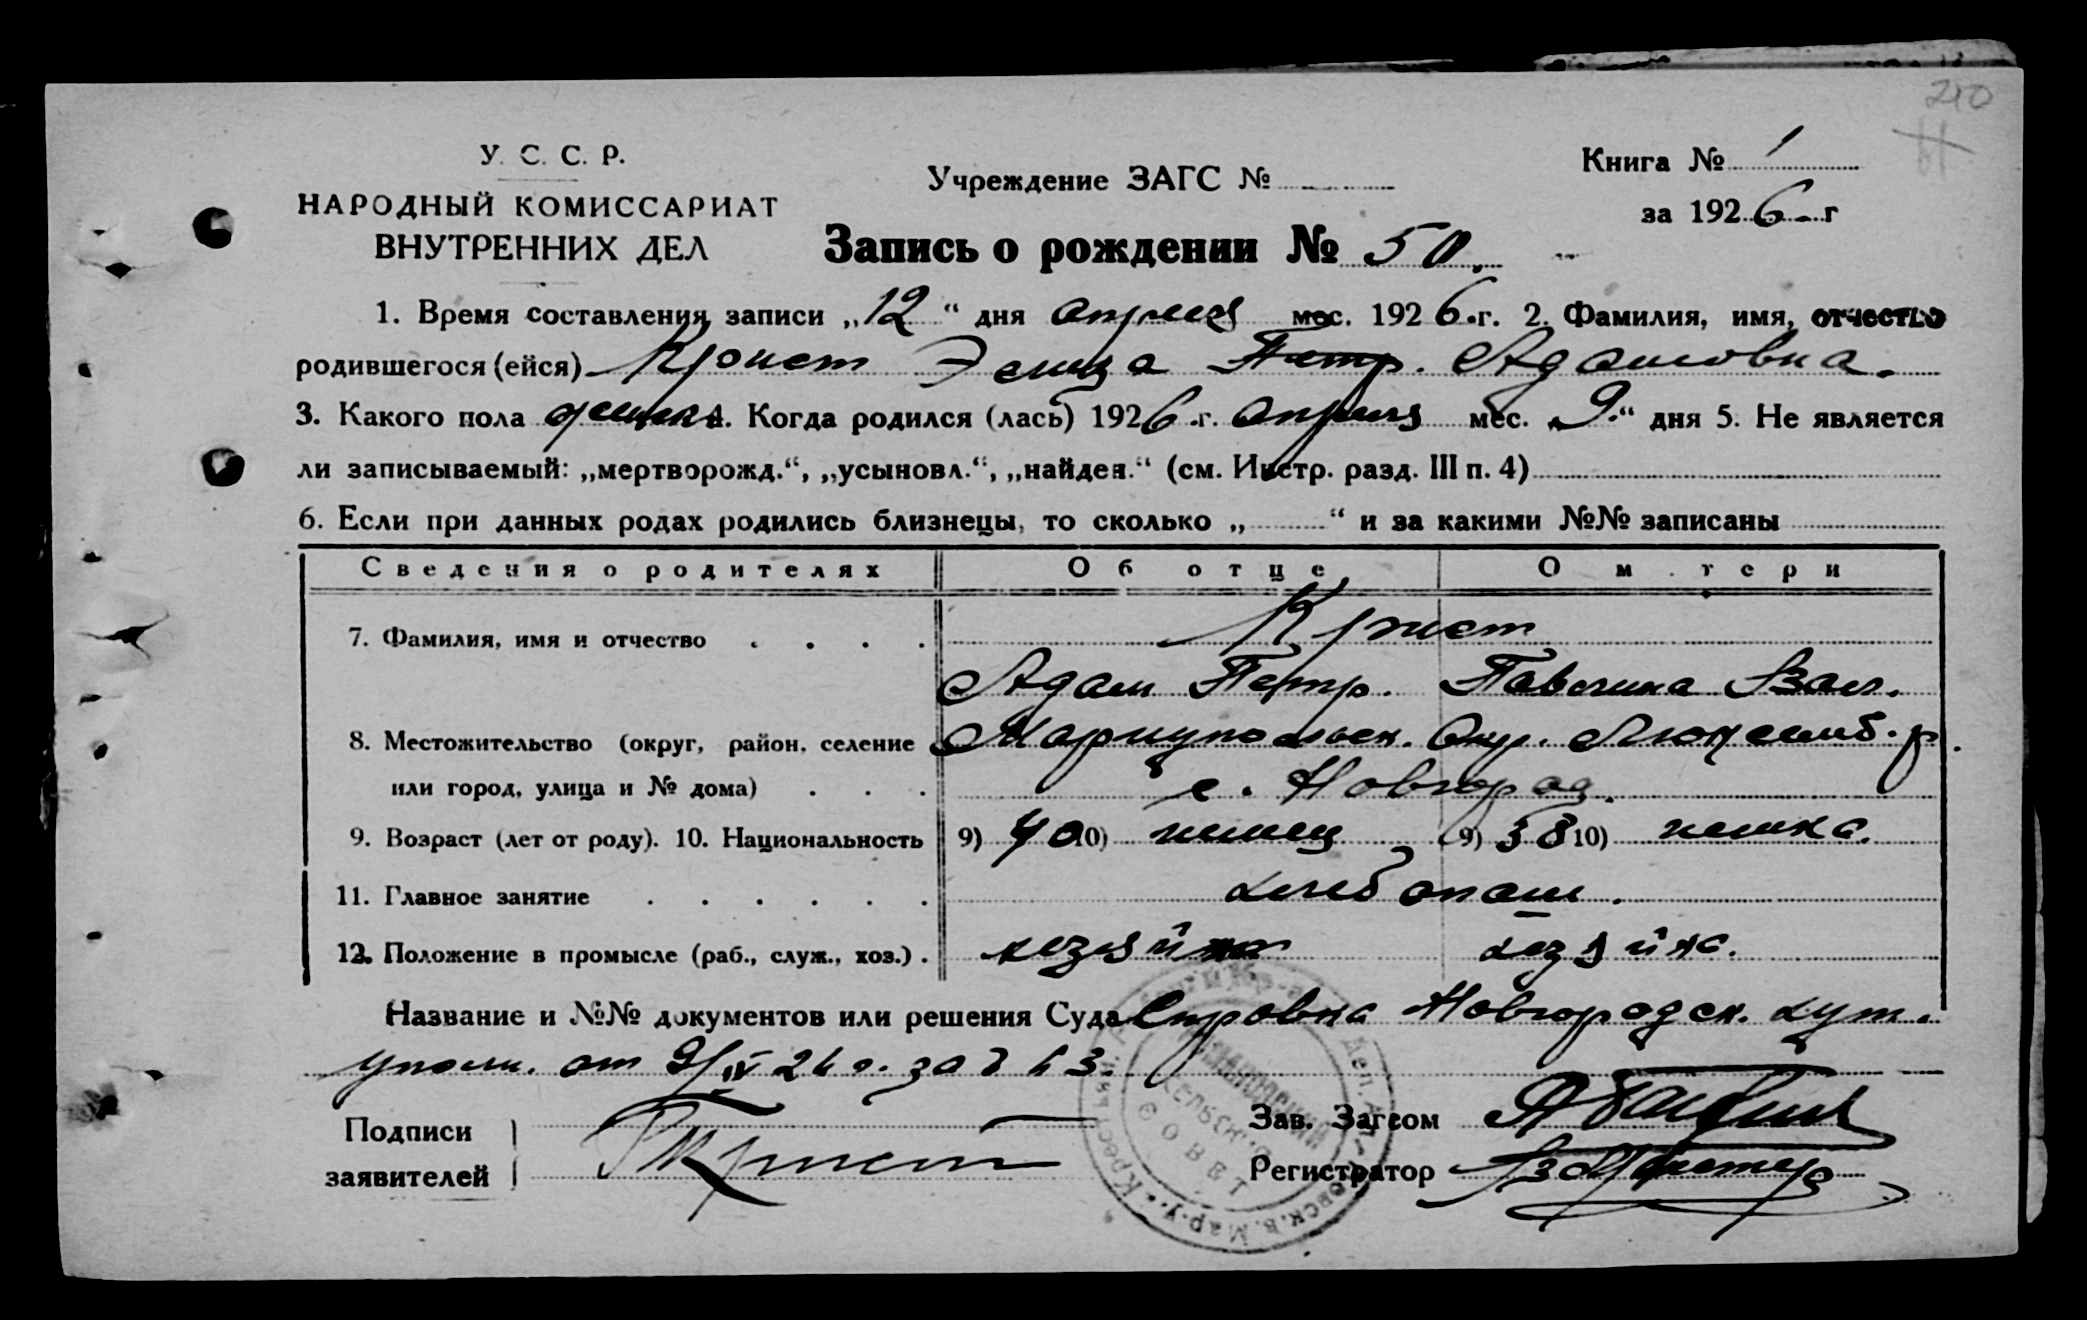 210
У. С. С. Р.
НАРОДНЫЙ КОМИССАРИАТ
ВНУТРЕННИХ ДЕЛ
Учреждение ЗАГС №
Книга № 1
за 1926 г
Запись о рождении № 50.
1. Время составления записи „12“ дня апреля мес. 1926.г. 2. Фамилия, имя, отчество
родившегося (ейся) Крист Эльза Петр. Адамовна.
3. Какого пола женск 4. Когда родился (лась) 1926.г. апреля мес. „9.“ дня 5. Не является
ли записываемый: „мертворожд.“, „усыновл.“, „найден.“ (см. Инстр. разд. III п. 4)
6. Если при данных родах родились близнецы, то сколько „ “ и за какими №№ записаны
Сведения о родителях Об отце О матери
7. Фамилия, имя и отчество Крист
Адам Петр. Павлина Вал.
8. Местожительство (округ, район, селение Мариупольск. Окр. Люксемб. р.
или город, улица и № дома) с. Новгород.
9. Возраст (лет от роду). 10. Национальность 9) 40 10) немец 9) 38 10) немка.
11. Главное занятие хлебопаш.
12. Положение в промысле (раб., служ., хоз.) хозяин хозяйка.
Название и №№ документов или решения Суда Справка Новгородск. хут.
уполн. от 9/IV 26 г. за № 63.
Подписи
заявителей Крист
Зав. Загсом
Регистратор
СЕЛЬСКИЙ
СОВЕТ